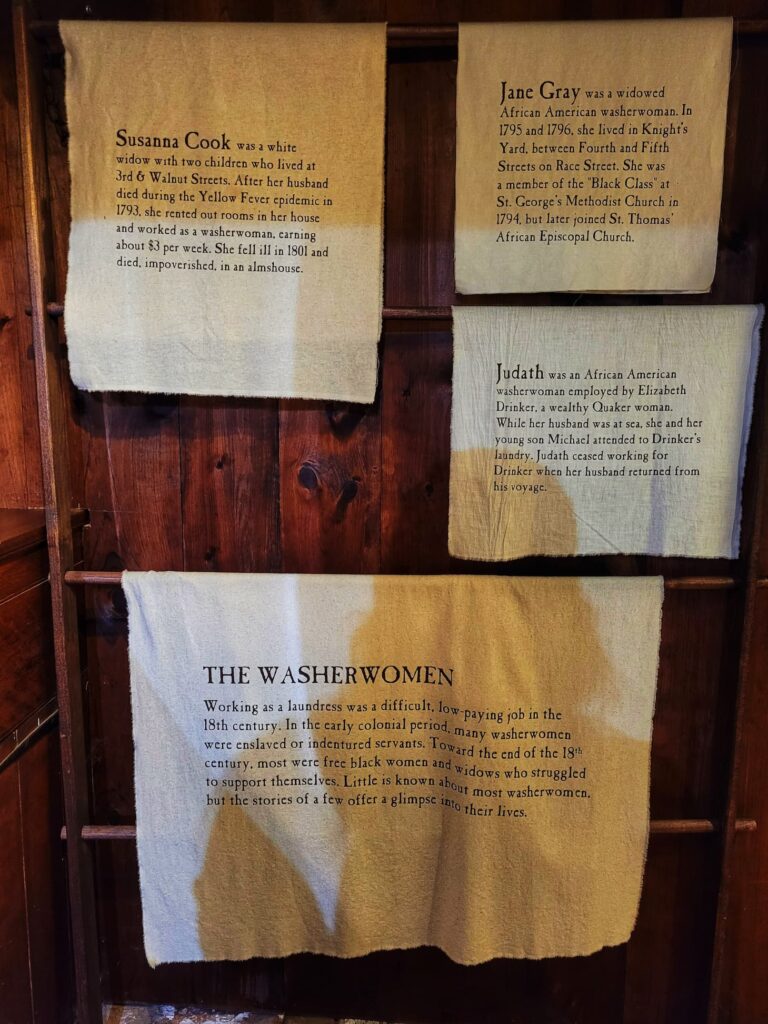 Susanna Cook was a white
widow with two children who lived at
3rd & Walnut Streets. After her husband
died during the Yellow Fever epidemic in
1793, she rented out rooms in her house
and worked as a washerwoman, earning
about $3 per week. She fell ill in 1801 and
died, impoverished, in an almshouse.
Jane Gray was a widowed
African American washerwoman. In
1795 and 1796, she lived in Knight's
Yard, between Fourth and Fifth
Streets on Race Street. She was
a member of the "Black Class" at
St. George's Methodist Church in
1794, but later joined St. Thomas'
African Episcopal Church.
Judath was an African American
washerwoman employed by Elizabeth
Drinker, a wealthy Quaker woman.
While her husband was at sea, she and her
young son Michael attended to Drinker's
laundry. Judath ceased working for
Drinker when her husband returned from
his voyage.
THE WASHERWOMEN
Working as a laundress was a difficult, low-paying job in the
18th century. In the early colonial period, many washerwomen
were enslaved or indentured servants. Toward the end of the 18th
century, most were free black women and widows who struggled
to support themselves. Little is known about most washerwomen,
but the stories of a few offer a glimpse into their lives.